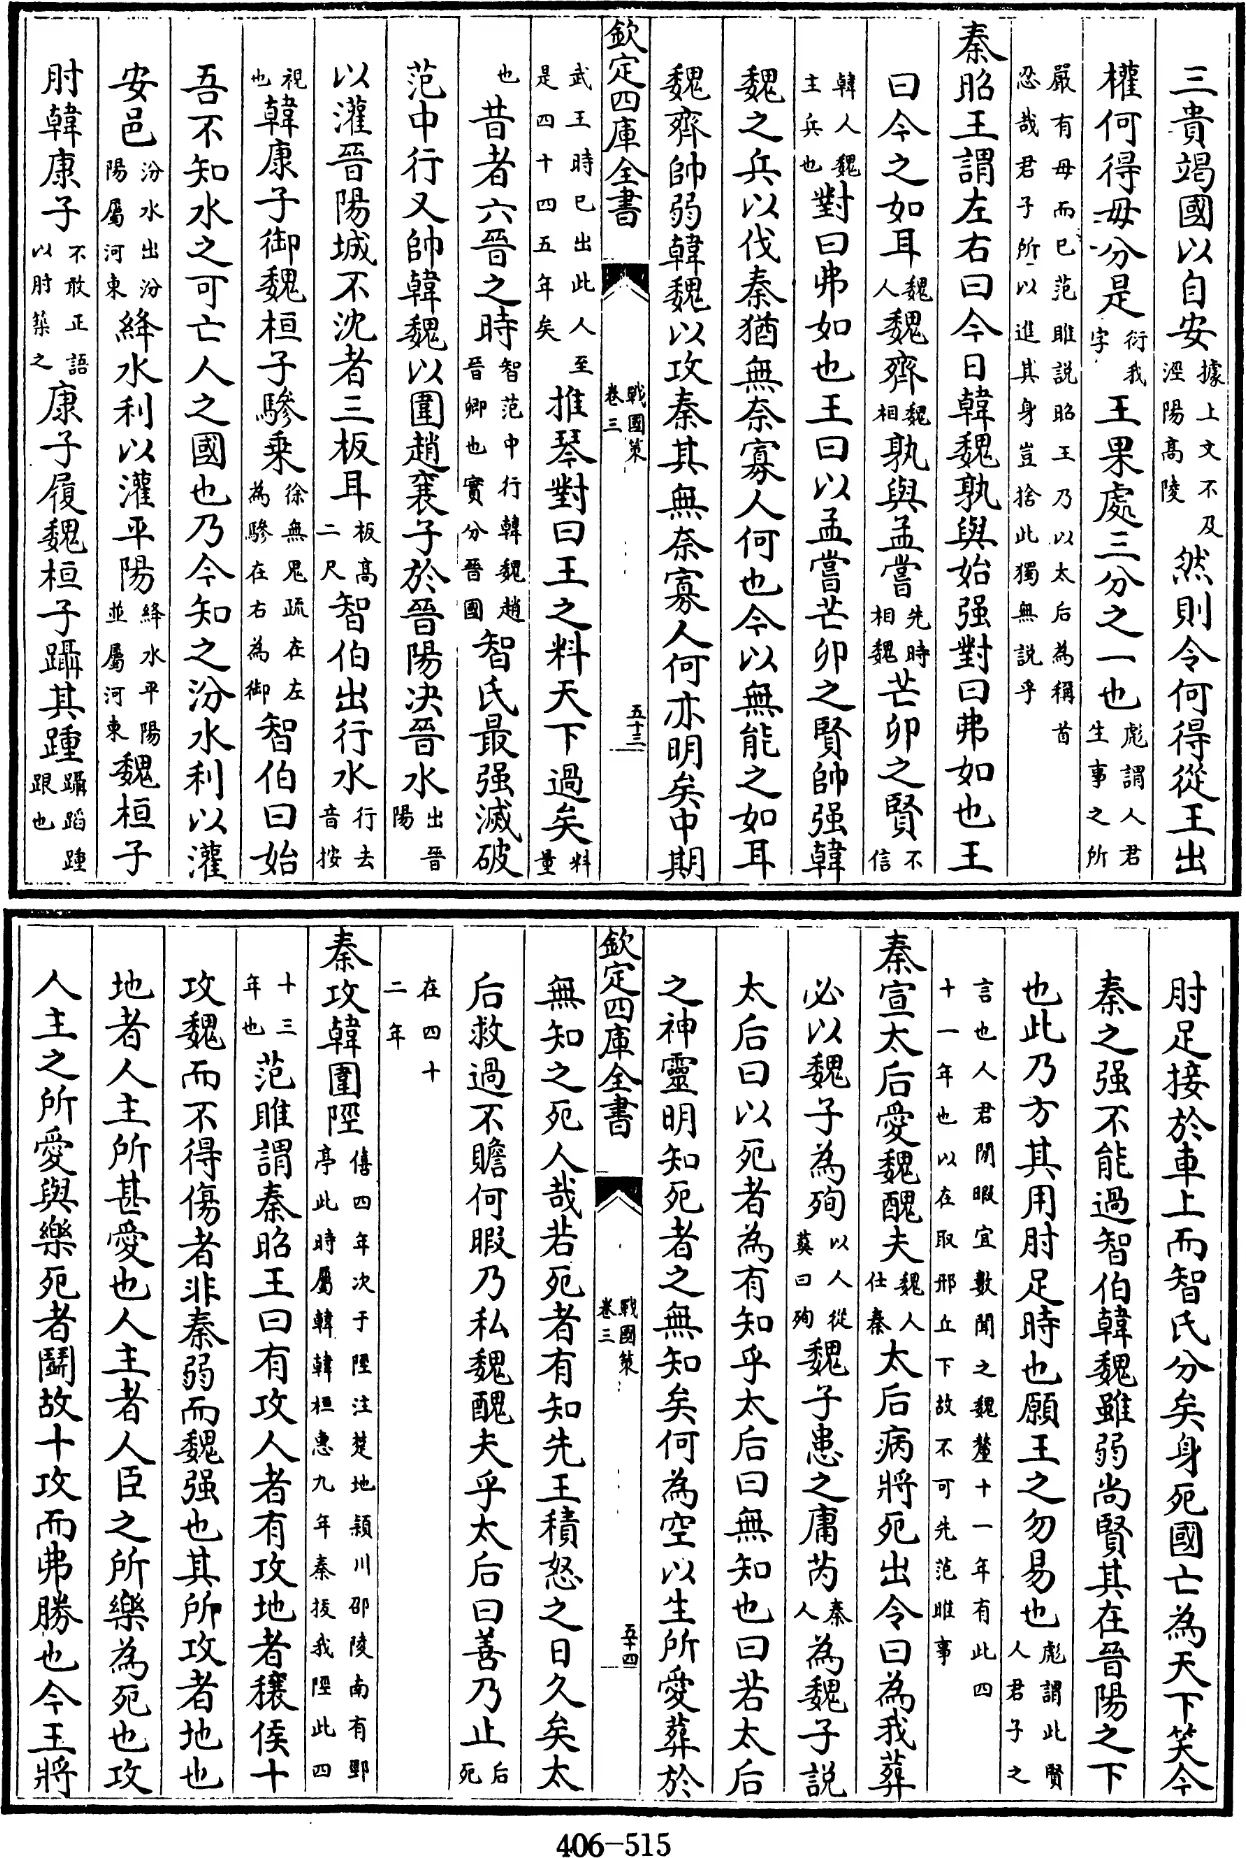 三貴竭國以自安據上文不及涇陽高陵然則令何得從王出
權何得毋分是衍我字王果處三分之一也彪謂人君生事之所
嚴有母而已范雎説昭王乃以太后為稱首忍哉君子所以進其身豈捨此獨無説乎
秦昭王謂左右曰今日韓魏孰與始强對曰弗如也王
曰今之如耳魏人魏齊魏相孰與孟嘗先時相魏芒卯之賢不信
韓人魏主兵也對曰弗如也王曰以孟嘗芒卯之賢帥强韓
魏之兵以伐秦猶無奈寡人何也今以無能之如耳
魏齊帥弱韓魏以攻秦其無奈寡人何亦明矣中期
欽定四庫全書 戰國策卷三 五十三
武王時已出此人至是四十四五年矣推琴對曰王之料天下過矣料量
也昔者六晉之時智范中行韓魏趙晉卿也實分晉國智氏最强滅破
范中行又帥韓魏以圍趙襄子於晉陽决晉水出晉陽
以灌晉陽城不沈者三板耳板高二尺智伯出行水行去音按
視也韓康子御魏桓子驂乘徐無鬼疏在左為驂在右為御智伯曰始
吾不知水之可亡人之國也乃今知之汾水利以灌
安邑汾水出汾陽屬河東絳水利以灌平陽絳水平陽並屬河東魏桓子
肘韓康子不敢正語以肘築之康子履魏桓子躡其踵躡蹈踵跟也
肘足接於車上而智氏分矣身死國亡為天下笑今
秦之强不能過智伯韓魏雖弱尚賢其在晉陽之下
也此乃方其用肘足時也願王之勿易也彪謂此賢人君子之
言也人君閒暇宜數聞之魏釐十一年有此四十一年也以在取邢丘下故不可先范雎事
秦宣太后愛魏醜夫魏人仕秦太后病將死出令曰為我葬
必以魏子為殉以人從葬曰殉魏子患之庸芮秦人為魏子説
太后曰以死者為有知乎太后曰無知也曰若太后
之神靈明知死者之無知矣何為空以生所愛葬於
欽定四庫全書 戰國策卷三 五十四
無知之死人哉若死者有知先王積怒之日久矣太
后救過不贍何暇乃私魏醜夫乎太后曰善乃止后死
在四十二年
秦攻韓圍陘僖四年次于陘注楚地頴川邵陵南有陘亭此時屬韓韓桓惠九年秦拔我陘此四
十三年也范雎謂秦昭王曰有攻人者有攻地者穰侯十
攻魏而不得傷者非秦弱而魏强也其所攻者地也
地者人主所甚愛也人主者人臣之所樂為死也攻
人主之所愛與樂死者鬭故十攻而弗勝也今王將
406-515